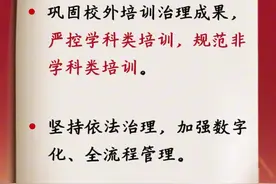 巩固校外培训治理成果，
严控学科类培训，规范非
学科类培训。
坚持依法治理，加强数字
化、全流程管理。